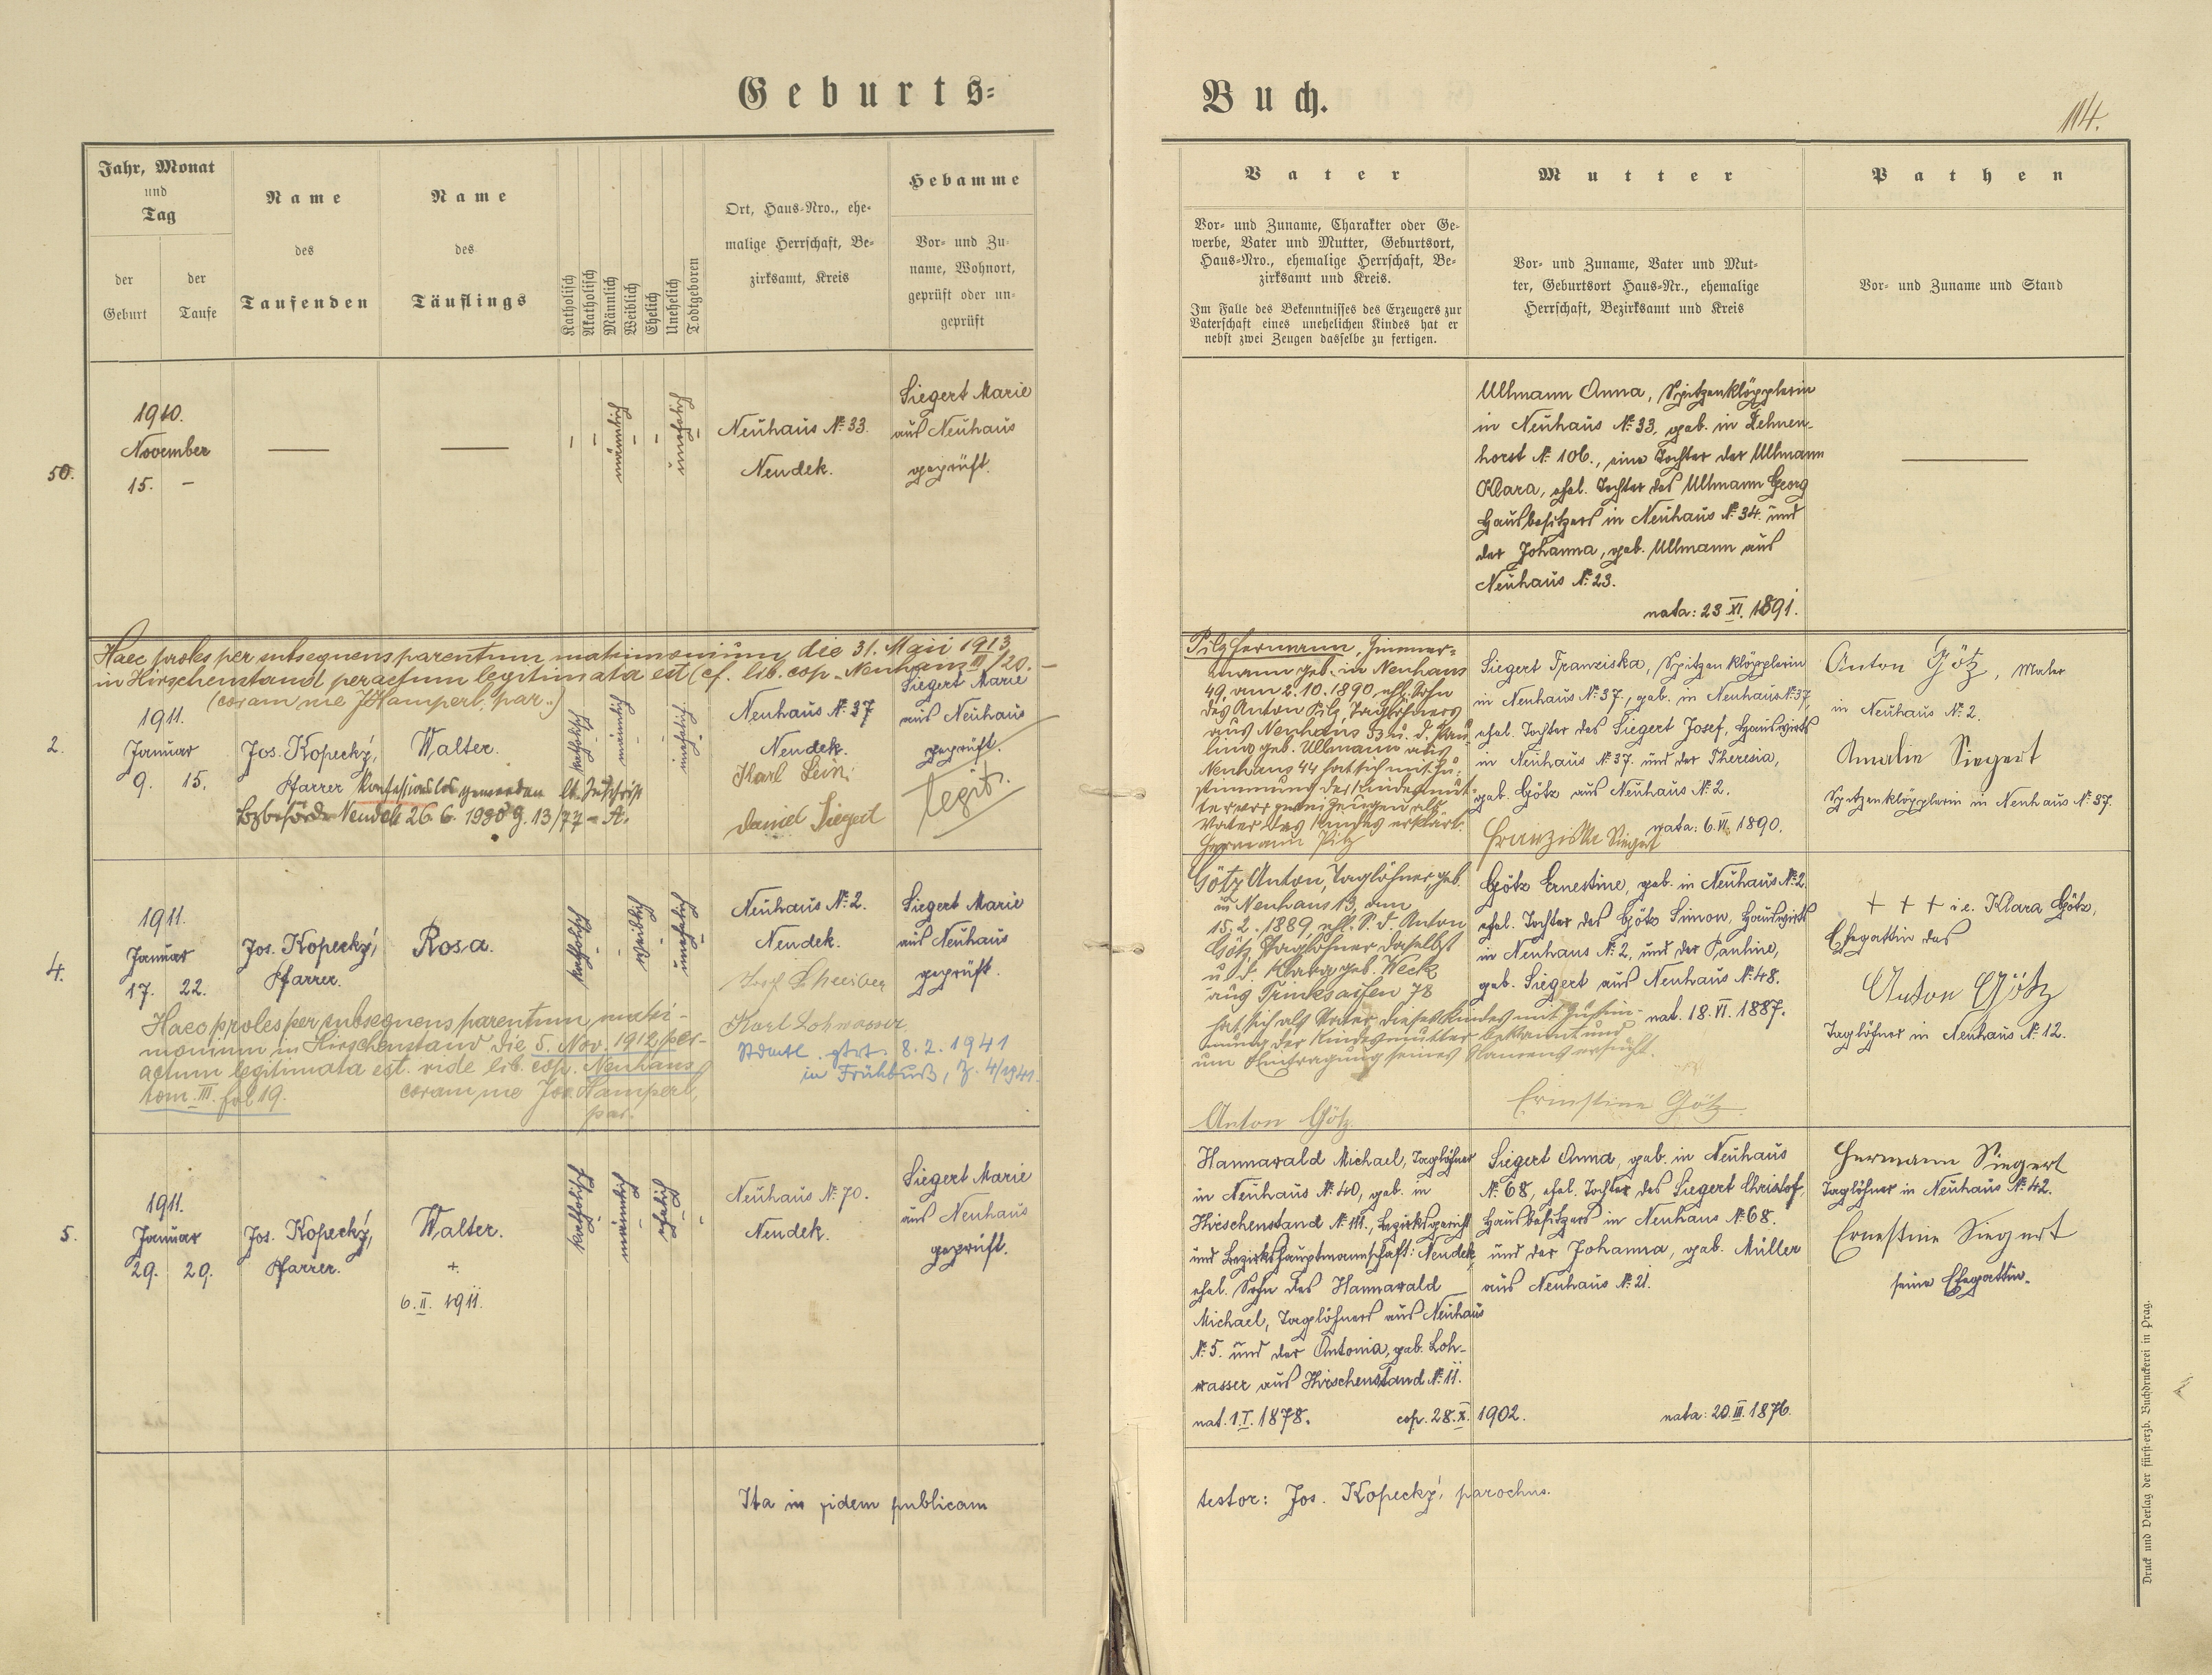 Geburts=
Buch.
114.
Jahr, Monat
und
Tag
der
Geburt
der
Taufe
Name
des
Taufenden
Name
des
Täuflings
Katholisch
Akatholisch
Männlich
Weiblich
Ehelich
Unehelich
Todtgeboren
Ort, Haus=Nro., ehe=
malige Herrschaft, Be=
zirksamt, Kreis
Hebamme
Vor= und Zu=
name, Wohnort,
geprüft oder un=
geprüft
Vater
Vor= und Zuname, Charakter oder Ge=
werbe, Vater und Mutter, Geburtsort,
Haus=Nro., ehemalige Herrschaft, Be=
zirksamt und Kreis.
Im Falle des Bekenntnisses des Erzeugers zur
Vaterschaft eines unehelichen Kindes hat er
nebst zwei Zeugen dasselbe zu fertigen.
Mutter
Vor= und Zuname, Vater und Mut=
ter, Geburtsort Haus=Nr., ehemalige
Herrschaft, Bezirksamt und Kreis
Pathen
Vor= und Zuname und Stand
50.
1910.
November
15. –
—
—
männlich
unehelich
Neuhaus № 33.
Neudek.
Siegert Marie
aus Neuhaus
geprüft.
Ullmann Anna, Spitzenklöpplerin
in Neuhaus № 33, geb. in Sehnen-
horst № 106., eine Tochter der Ullmann
Klara, ehel. Tochter des Ullmann Georg
Hausbesitzers in Neuhaus № 34. und
der Johanna, geb. Ullmann aus
Neuhaus № 23.
nata: 23 XI. 1891.
—
Haec proles per subsequens parentum matrimonium die 31. Maii 1913
in Hirschenstand peractum legitimata est (cf. lib. cop. Neuhaus III/20. –
(coram me J Hamperl, par.)
2.
1911.
Januar
9. 15.
Jos. Kopecký,
Pfarrer
Walter.
katholisch
männlich
unehelich
Neuhaus № 37
Neudek.
Karl
Daniel Siegert
Siegert Marie
aus Neuhaus
geprüft.
legit.
Konfessionslos geworden lt. Zuschrift
Bzbehörde Neudek 26. 6. 1930 g. 13/77 – A.
Pilz Hermann, Zimmer=
mann geb. in Neuhaus
49, am 2.10.1890, ehl. Sohn
des Anton Pilz, Taglöhners
aus Neuhaus 53 u. d. Pau=
lina geb. Ullmann aus
Neuhaus 44 hat sich mit Zu=
stimmung der Kindesmut=
ter vor zwei Zeugen als
Vater des Kindes erklärt.
Hermann Pilz
Siegert Franziska, Spitzenklöpplerin
in Neuhaus № 37., geb. in Neuhaus № 37,
ehel. Tochter des Siegert Josef, Hauswirts
in Neuhaus № 37. und der Theresia,
geb. Götz aus Neuhaus № 2.
nata: 6. VI. 1890.
Franziska Siegert
Anton Götz, Maler
in Neuhaus № 2.
Amalie Siegert
Spitzenklöpplerin in Neuhaus № 37.
4.
1911.
Januar
17. 22.
Jos. Kopecký,
Pfarrer.
Rosa.
katholisch
weiblich
unehelich
Neuhaus № 2.
Neudek.
Josef
Karl Lohwasser
Siegert Marie
aus Neuhaus
geprüft.
Haec proles per subsequens parentum matri-
monium in Hirschenstand die 5. Nov. 1912 per-
actum legitimata est. vide lib. cop. Neuhaus
tom. III. fol 19.
coram me Jos. Hamperl,
par.
8. 2. 1941
in Frühbuß, Z. 4/1941.
Götz Anton, Taglöhner, geb.
in Neuhaus 13, am
15.2.1889, ehl. S. d. Anton
Götz, Taglöhner daselbst
u. d. Klara geb. Weck
aus Trinksaifen 78
hat sich als Vater dieses Kindes mit Zustim-
mung der Kindesmutter bekannt und
um Eintragung seines Namens ersucht.
Anton Götz
Götz Ernestine, geb. in Neuhaus № 2.
ehel. Tochter des Götz Simon, Hauswirts
in Neuhaus № 2, und der Pauline,
geb. Siegert aus Neuhaus № 48.
nat. 18. VI. 1887.
Ernestine Götz
+ + + i.e. Klara Götz,
Ehegattin des
Anton Götz
Taglöhner in Neuhaus № 12.
5.
1911.
Januar
29. 29.
Jos. Kopecký,
Pfarrer.
Walter.
+.
6. II. 1911.
katholisch
männlich
ehelich
Neuhaus № 70.
Neudek.
Siegert Marie
aus Neuhaus
geprüft.
Hannawald Michael, Taglöhner
in Neuhaus № 40, geb. in
Hirschenstand № 111., Bezirksgericht
und Bezirkshauptmannschaft: Neudek,
ehel. Sohn des Hannawald
Michael, Taglöhners aus Neuhaus
№ 5. und der Antonia, geb. Loh-
wasser aus Hirschenstand № 11.
nat. 1. I. 1878.
cop. 28. X. 1902.
Siegert Anna, geb. in Neuhaus
№ 68, ehel. Tochter des Siegert Christof,
Hausbesitzers in Neuhaus № 68.
und der Johanna, geb. Müller
aus Neuhaus № 21.
nata: 20. III. 1876.
Hermann Siegert
Taglöhner in Neuhaus № 42.
Ernestine Siegert
seine Ehegattin.
Ita in fidem publicam
testor: Jos. Kopecký, parochus.
Druck und Verlag der fürst=erzb. Buchdruckerei in Prag.